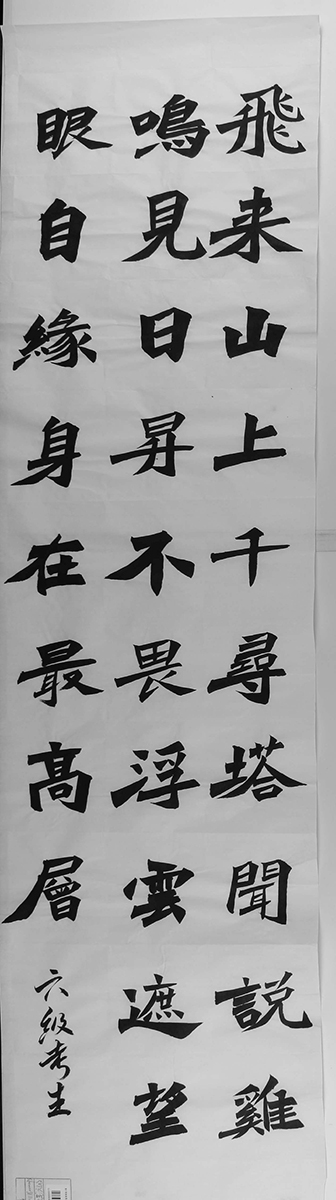 飛来山上千尋塔聞説雞
鳴見日昇不畏浮雲遮望
眼自緣身在最高層
六级考生